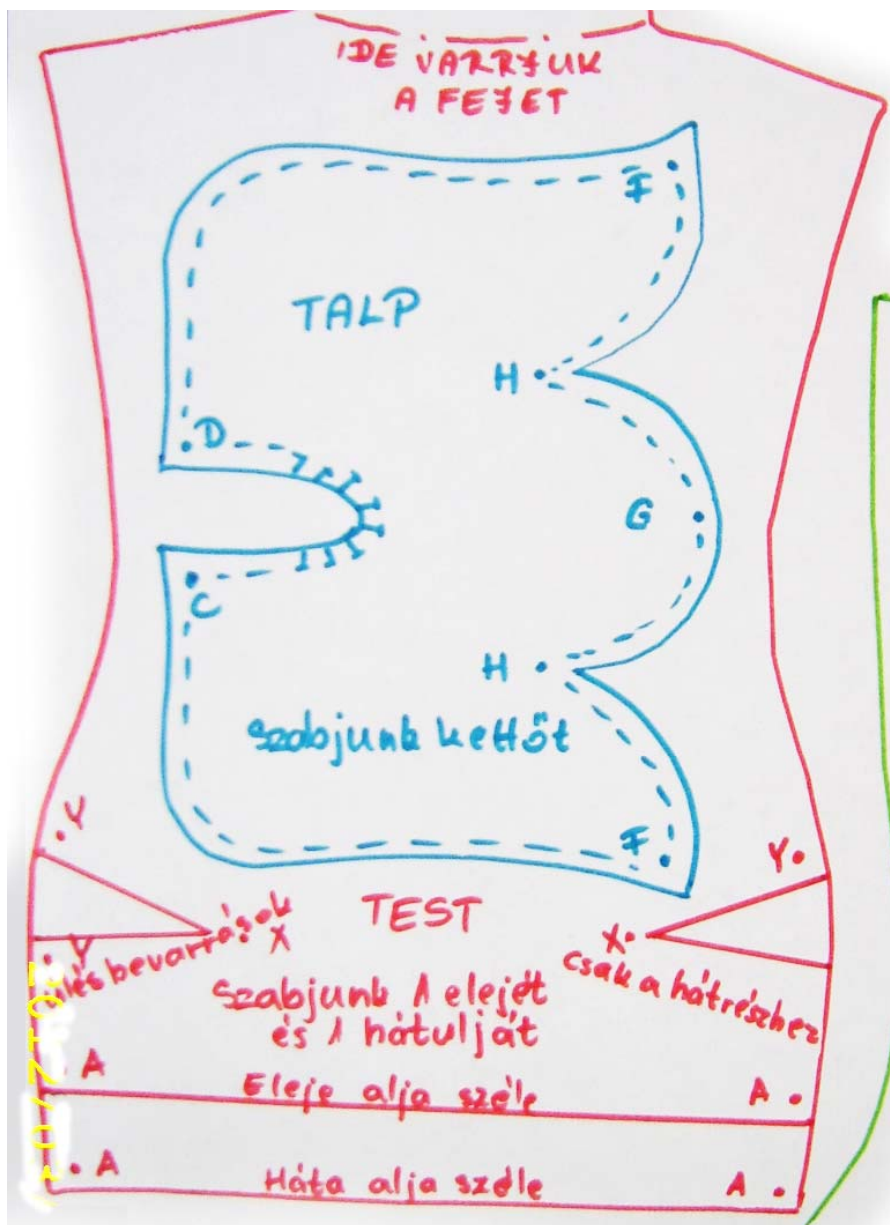 IDE VARRJUK
A FEJET
F
TALP
H
D
G
C
H
Szabjunk kettőt
F
Y
Y
TEST
X
X
Y
ülés bevarrások
csak a hátrészhez
Szabjunk 1 elejét
és 1 hátulját
A
Eleje alja széle
A
A
Háta alja széle
A